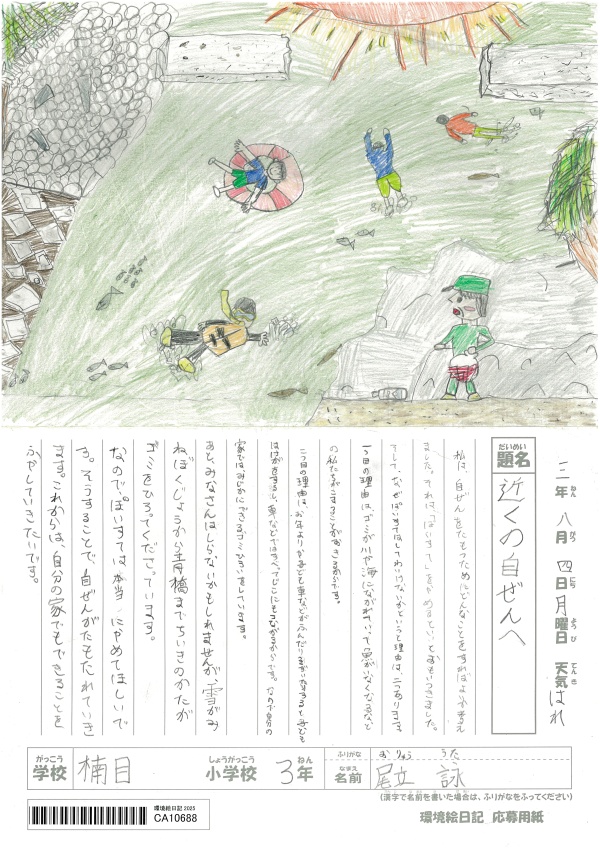 三年 八月 四日 月曜日 天気 はれ
ねん がつ にち ようび てんき
だいめい
題名 近くの自ぜんへ
私は、自ぜんをたもつためにどんなことをすればよいか考え
ました。それは、「ぽいすて」をやめるといいとおもいつきました。
そして、なぜぽいすてはしてわいけないかという理由は、二つあります。
一つ目の理由は、ゴミが川や海にながれていって魚がいなくなるなど
の私たちがこまることがおきるからです。
二つ目の理由は、お年よりや子ども車などがふんだり
はけがをするし、車などではすべってじこにもつながるからです。なので自分の
家では、みじかにできる、ゴミひろいをしています。
あと、みなさんはしらないかもしれませんが、雪がみ
ねぼくじょうから 橋までちいきのかたが
ゴミをひろってくださっています。
なので、ぽいすては、本当 にやめてほしいで
す。そうすることで、自ぜんがたもたれていき
ます。これからは、自分の家でもできることを
ふやしていきたいです。
がっこう しょうがっこう ねん ふりがな おりゅう うた
学校 楠目 小学校 3年 なまえ 名前 尾立 詠
(漢字で名前を書いた場合は、ふりがなをふってください)
環境絵日記 2025
CA10688
環境絵日記 応募用紙